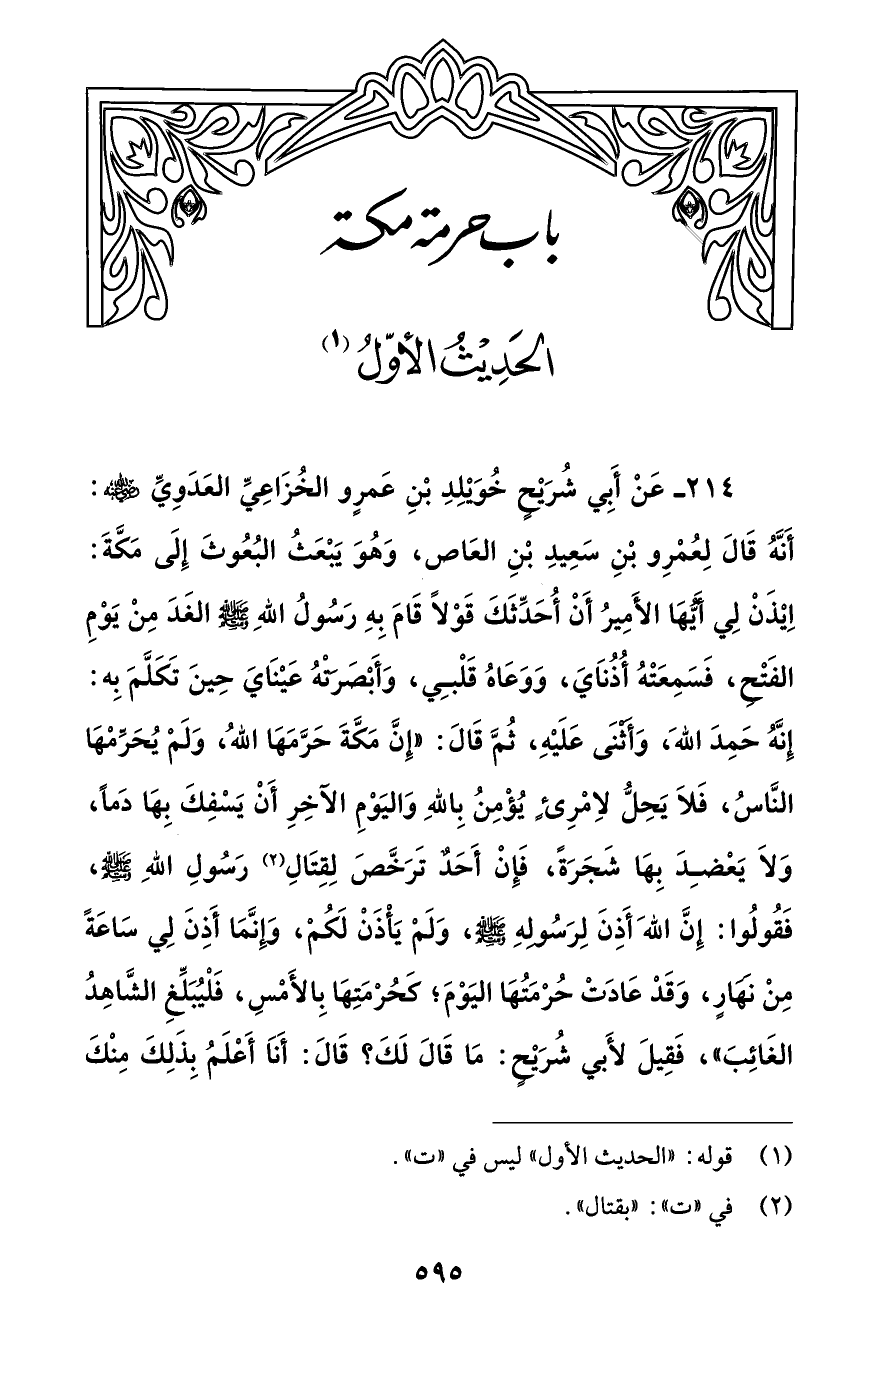 باب حرمة مكة
الحَدِيْثُ الأَوَّلُ (١)
٢١٤ـ عَنْ أَبِي شُرَيْحٍ خُوَيْلِدِ بْنِ عَمرٍو الخُزَاعِيِّ العَدَوِيِّ رضي الله عنه :
أَنَّهُ قَالَ لِعُمْرِو بْنِ سَعِيدِ بْنِ العَاص، وَهُوَ يَبْعَثُ البُعُوثَ إِلَى مَكَّةَ:
اِيْذَنْ لِي أَيُّهَا الأَمِيرُ أَنْ أُحَدِّثَكَ قَوْلاً قَامَ بِهِ رَسُولُ اللهِ ﷺ الغَدَ مِنْ يَوْمِ
الفَتْحِ، فَسَمِعَتْهُ أُذُنَايَ، وَوَعَاهُ قَلْبِي، وَأَبْصَرَتْهُ عَيْنَايَ حِينَ تَكَلَّمَ بِه:
إِنَّهُ حَمِدَ اللهَ، وَأَثْنَى عَلَيْهِ، ثُمَّ قَالَ: «إِنَّ مَكَّةَ حَرَّمَهَا اللهُ، وَلَمْ يُحَرِّمْهَا
النَّاسُ، فَلاَ يَحِلُّ لاِمْرِئٍ يُؤْمِنُ بِاللهِ وَاليَوْمِ الآخِرِ أَنْ يَسْفِكَ بِهَا دَماً،
وَلاَ يَعْضِدَ بِهَا شَجَرَةً، فَإِنْ أَحَدٌ تَرَخَّصَ لِقِتَالِ(٢) رَسُولِ اللهِ ﷺ،
فَقُولُوا: إِنَّ اللهَ أَذِنَ لِرَسُولِهِ ﷺ، وَلَمْ يَأْذَنْ لَكُمْ، وَإِنَّمَا أَذِنَ لِي سَاعَةً
مِنْ نهَارٍ، وَقَدْ عَادَتْ حُرْمَتُهَا اليَوْمَ؛ كَحُرْمَتِهَا بِالأَمْسِ، فَلْيُبَلِّغِ الشَّاهِدُ
الغَائِبَ»، فَقِيلَ لأَبي شُرَيْحٍ: مَا قَالَ لَكَ؟ قَالَ: أَنَا أَعْلَمُ بِذَلِكَ مِنْكَ
(١) قوله: «الحديث الأول» ليس في «ت».
(٢) في «ت»: «بقتال».
٥٩٥